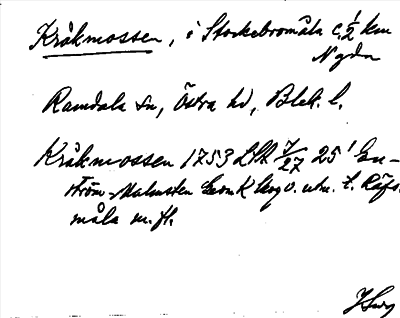 Kråkmossen, i Stockebromåla c. ½ km
N g dn
Ramdala sn, Östra hd, Blek. l.
Kråkmossen 1753 LSA 7/27 25¹ En-
ström-Malmsten Geom K
måla m. fl.